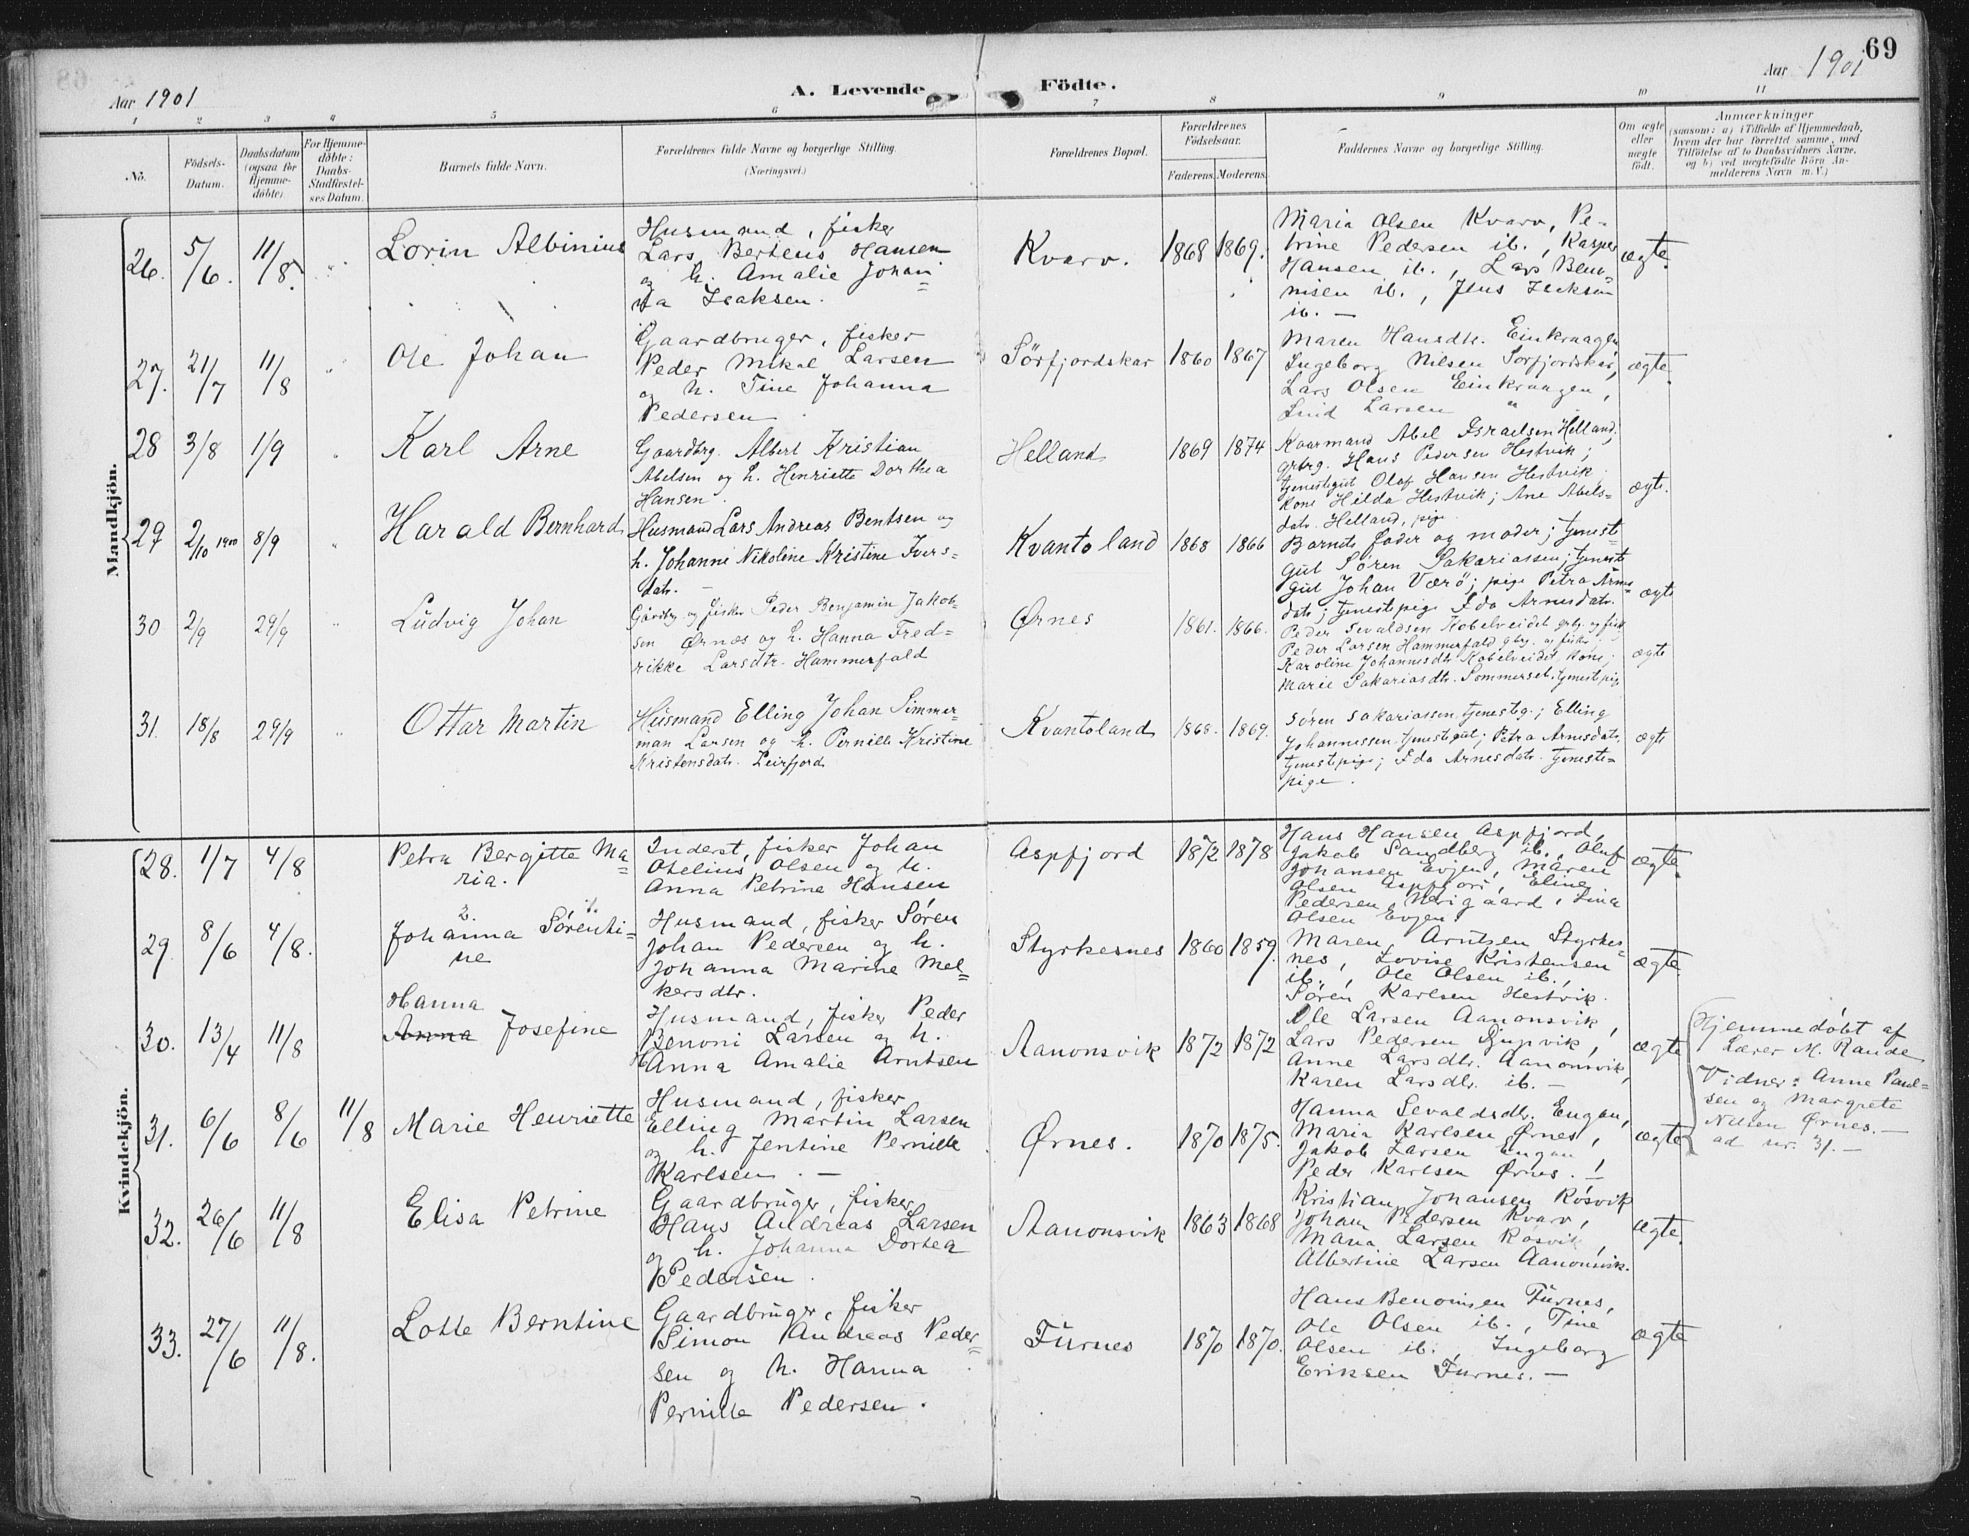 69
Aar 1901
A. Levende Födte.
Aar 1901
1 2 3 4 5 6 7 8 9 10 11
No.
Födsels-
Datum.
Daabsdatum
(ogsaa för
Hjemme-
döbte)
For Hjemme-
döbte:
Daabs-
Stadfæstel-
ses Datum.
Barnets fulde Navn.
Forældrenes fulde Navne og borgerlige Stilling.
(Næringsvei.)
Forældrenes Bopæl.
Forældrenes
Födselsaar.
Faderens. Moderens.
Faddernes Navne og borgerlige Stilling.
Om ægte
eller
uægte
födt.
Anmærkninger
(saasom: a) i Tilfælde af Hjemmedaab,
hvem der har forrettet samme, med
Tilföielse af to Daabsvidners Navne,
og b) ved uægtefödte Börn An-
melderens Navn m. V.)
Mandkjön.
26. 5/6. 11/8. Lorin Albinius
Husmand, fisker
Lars Berteus Hansen
og h. Amalie Johan-
na Isaksen.
Kvarv. 1868 1869.
Maria Olsen Kvarv, Pe-
trine Pedersen ib., Kasper
Hansen ib., Lars Ben-
nisen ib., Jens Isaksen
ib. —
ægte.
27. 21/7 11/8 Ole Johan
Gaardbruger, fisker
Peder Mikal Larsen
og h. Tine Johanna
Pedersen.
Sörfjordskar 1860 1867
Maren Hansdtr. Einkraagen
Ingeborg Nilsen Sörfjordskar,
Lars Olsen Einkraagen,
Larsen "
ægte.
28 3/8 1/9 Karl Arne
Gaardbrg. Albert Kristian
Abelsen og h. Henriette Dorthea
Hansen.
Helland 1869 1874
Kaarmand Abel Israelsen Helland;
grbrg. Hans Pedersen Hestvik;
tjenestegut Olaf Hansen Hestvik
kone Hilda Hestvik; Ane Abels-
datr. Helland, pige.
ægte.
29 2/10 1900 8/9 Harald Bernhard
Husmand Lars Andreas Bentsen og
h. Johanne Nikoline Kristine Ivers-
datr. —
Kvantoland 1868 1866
Barnets fader og moder; tjeneste-
gut Sören Sakariassen; tjeneste
gut Johan Værö; pige Petra Arnes-
datr; tjenestepige Ida Arnesdatr.
ægte
30 2/9 29/9 Ludvig Johan
Gårdbr. og fisker Peder Benjamin Jakob-
sen Ørnæs og h. Hanna Fred-
rikke Larsdtr. Hammerfald
Ørnes 1861. 1866.
Peder Sevaldsen Kobelveidet grbg. og fisk
Peder Larsen Hammerfald gbrg. og fisker
Karoline Johannesdtr. Kobelveidet kone;
Marie Sakariasdtr. Sommerset. tjenestepige
ægte
31. 18/8 29/9 Ottar Martin
Husmand Elling Johan Simmer-
man Larsen og h. Pernille Kristine
Kristensdatr. Leirfjord
Kvantoland 1868. 1869.
Sören Sakariassen tjenesteg.; Elling
Johannessen tjenestegut; Petra Arnesdatr.
tjenestepige; Ida Arnesdatr. tjeneste-
pige.
ægte
Kvindekjön.
28. 1/7 4/8 Petra Bergitte Ma-
ria.
Inderst, fisker Johan
Otelius Olsen og h.
Anna Petrine Hansen
Aspfjord 1872 1878
Hans Hansen Aspfjord,
Jakob Sandberg ib., Oluf
Johansen Evjen, Maren
Olsen Aspfjord, Eline
Pedersen Nerigaard, Lina
Olsen Evjen.
ægte.
29. 8/6 4/8. Johanna Sörenti-
ne
Husmand, fisker Sören
Johan Pedersen og h.
Johanna Marine Mel-
kersdtr.
Styrkesnes 1860 1859.
Maren Arntsen Styrkes-
nes, Lovise Kristensen
ib., Ole Olsen ib.,
Sören Karlsen Hestvik.
ægte
30. 13/4 11/8 Hanna
Anna Josefine
Husmand, fisker Peder
Benoni Larsen og h.
Anna Amalie Arntsen
Aanonsvik 1872 1872
Ole Larsen Aanonsvik,
Lars Pedersen Djupvik,
Anne Larsdtr. Aanonsvik,
Karen Larsdtr. ib. —
ægte
Hjemmedöbt af
Lærer M. Rande
Vidner: Anne Paul-
sen og Margrete
Nilsen Ørnes. —
ad nr. 31. —
31. 6/6 8/6 11/8 Marie Henriette
Husmand, fisker
Elling Martin Larsen
og h. Jentine Pernille
Karlsen. —
Ørnes. 1870 1875.
Hanna Sevaldsdtr. Engan,
Maria Karlsen Ørnes,
Jakob Larsen Engan
Peder Karlsen Ørnes. !
ægte
32. 26/6 11/8 Elisa Petrine
Gaardbruger, fisker
Hans Andreas Larsen
og h. Johanna Dortea
Pedersen.
Aanonsvik 1863 1868
Kristian Johansen Rösvik
Johan Pedersen Kvarv,
Maria Larsen Rösvik,
Albertine Larsen Aanonsvik.
ægte.
33. 27/6 11/8. Lotte Berntine
Gaardbruger, fisker
Simon Andreas Peder-
sen og h. Hanna
Pernille Pedersen.
Furnes 1870 1870.
Hans Benonisen Furnes,
Ole Olsen ib., Tine
Olsen ib., Ingeborg
Eriksen Furnes. —
ægte